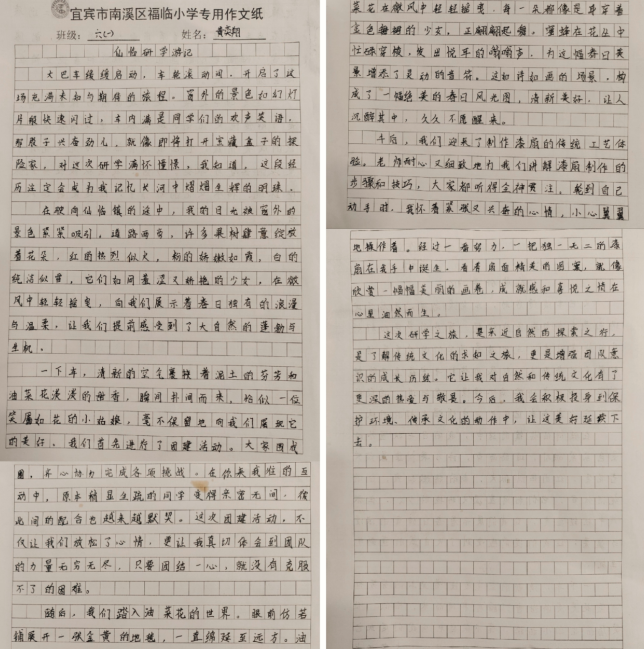 宜宾市南溪区福临小学专用作文纸
班级：六(一) 姓名：黄奕翔
仙临研学游记
大巴车缓缓启动，车轮滚动间，开启了这
场充满未知与期待的旅程。窗外的景色如幻灯
片般快速闪过，车内满是同学们的欢声笑语，
那股子兴奋劲儿，就像即将打开宝藏盒子的探
险家，对这次研学满怀憧憬，我知道，这段经
历注定会成为我记忆长河中熠熠生辉的明珠。
在驶向仙临镇的途中，我的目光被窗外的
景色紧紧吸引，道路两旁，许多果树肆意绽放
着花朵，红的热烈似火，粉的娇嫩如霞，白的
纯洁似雪，它们如同羞涩又娇艳的少女，在微
风中轻轻摇曳，向我们展示着春日独有的浪漫
与温柔，让我们提前感受到了大自然的蓬勃与
生机。
一下车，清新的空气裹挟着泥土的芬芳和
油菜花淡淡的幽香，瞬间扑面而来，恰似一位
笑靥如花的小姑娘，毫不保留地向我们展现它
的美好。我们首先进行了团建活动。大家围成
圈，齐心协力完成各项挑战。在你来我往的互
动中，原本稍显生疏的同学变得亲密无间，彼
此间的配合也越来越默契。这次团建活动，不
仅让我们放松了心情，更让我真切体会到团队
的力量无穷无尽，只要团结一心，就没有克服
不了的困难。
随后，我们踏入油菜花的世界，眼前仿若
铺展开一张金黄的地毯，一直绵延至远方。油
菜花在微风中轻轻摇曳，每一朵都像是身穿着
金色舞裙的少女，正翩翩起舞。蜜蜂在花丛中
忙碌穿梭，发出悦耳的嗡嗡声，为这幅春日美
景增添了灵动的音符。这如诗如画的场景，构
成了一幅绝美的春日风光图，清新美好，让人
沉醉其中，久久不愿醒来。
午后，我们迎来了制作漆扇的传统工艺体
验。老师耐心又细致地为我们讲解漆扇制作的
步骤和技巧，大家都听得全神贯注。轮到自己
动手时，我怀着紧张又兴奋的心情，小心翼翼
地操作着。经过一番努力，一把独一无二的漆
扇在我手中诞生，看着扇面精美的图案，就像
欣赏一幅幅美丽的画卷，成就感和喜悦之情在
心里油然而生。
这次研学之旅，是亲近自然的探索之行，
是了解传统文化的求知之旅，更是增强团队意
识的成长历练。它让我对自然和传统文化有了
更深的热爱与敬畏。今后，我会积极投身到保
护环境、传承文化的动作中，让这美好延续下
去。